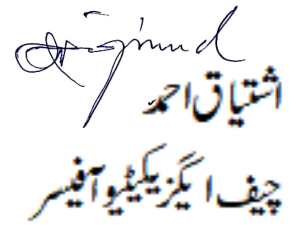 اشتیاق احمد
چیف ایگزیکیٹیو آفیسر